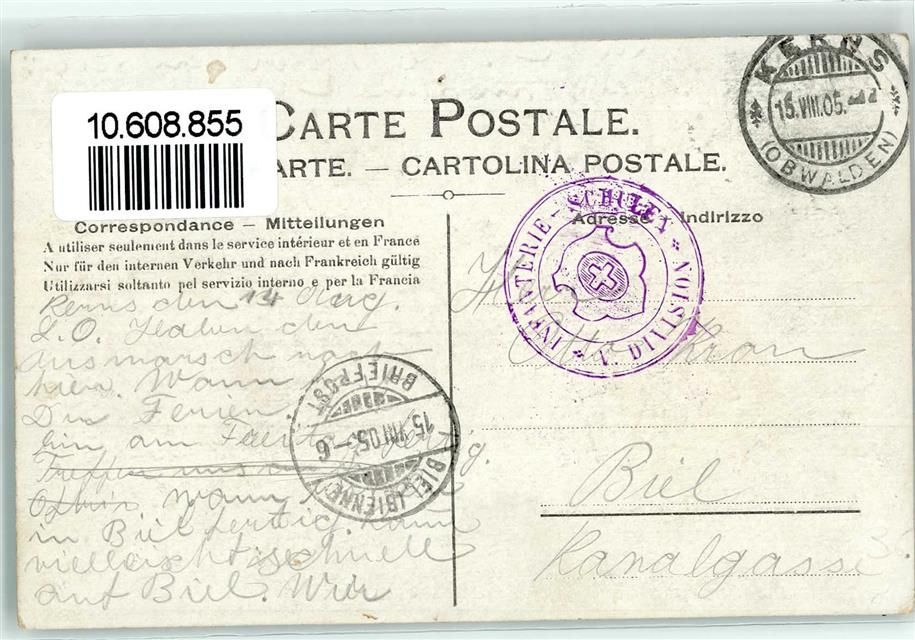 10.608.855
CARTE POSTALE.
ARTE. — CARTOLINA POSTALE.
KERNS
15.VIII.05.
(OBWALDEN)
INFANTERIE-SCHULEN
DIVISION
Correspondance – Mitteilungen
A utiliser seulement dans le service intérieur et en France
Nur für den internen Verkehr und nach Frankreich gültig
Utilizzarsi soltanto pel servizio interno e per la Francia
Kerns den 14 Aug.
L. O. Haben den
Ausmarsch nach
hier. Wann
Du Ferien
bin am
wann
in Biel fertig. Kann
vielleicht schnell
auf Biel. Wir
BRIEFPOST
15.VIII.05.–6
BIEL (BIENNE)
Adresse – Indirizzo
Herr
Otto Kron
Biel
Kanalgasse